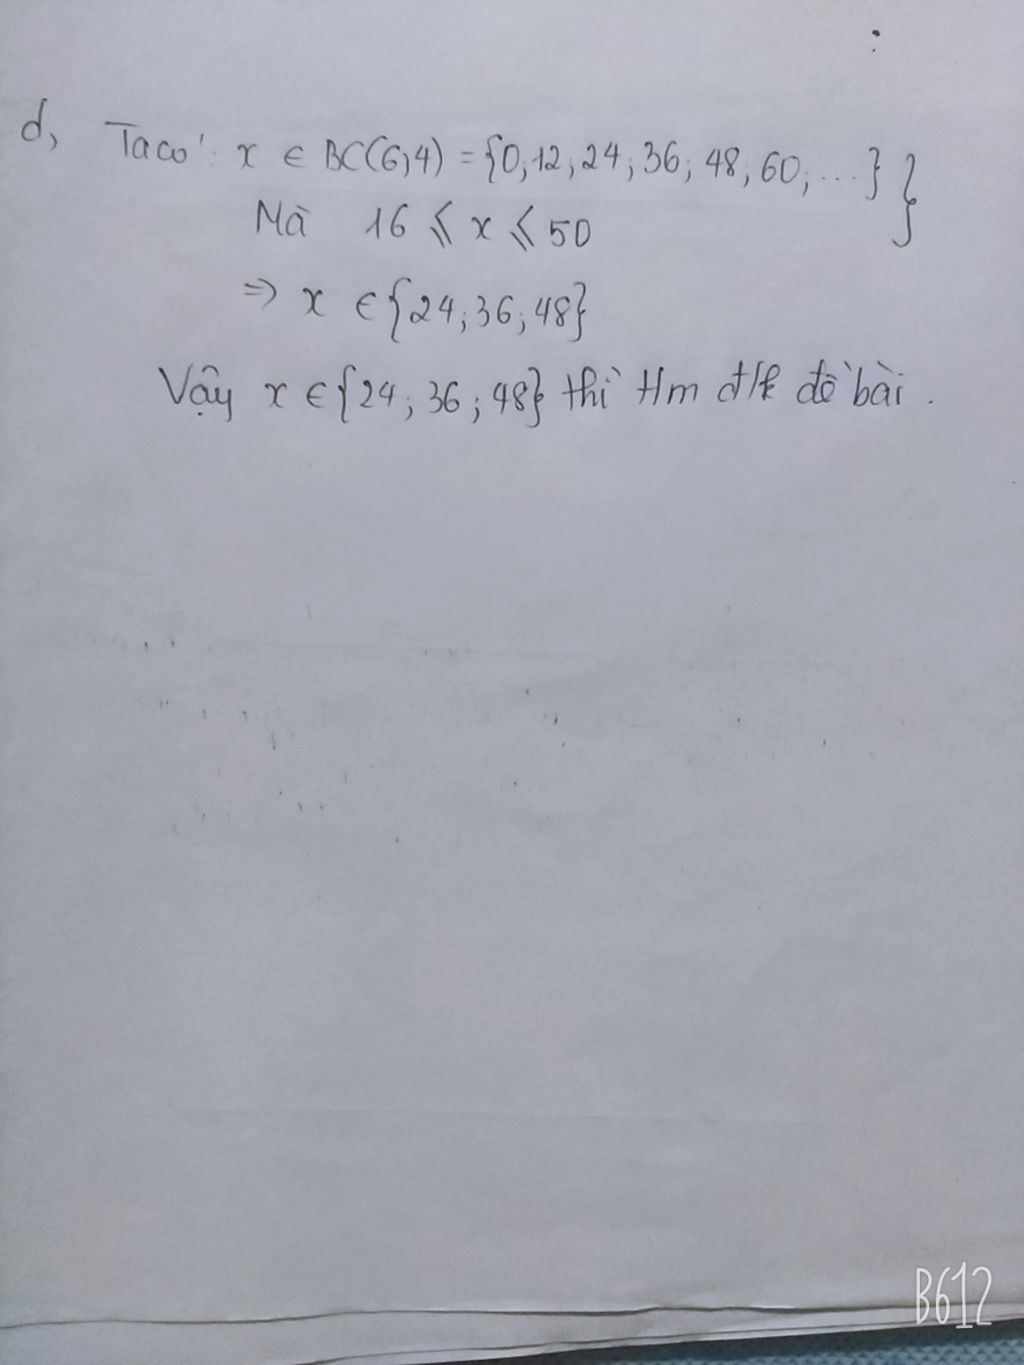 d, Ta có: x ∈ BC(6,4) = {0; 12; 24; 36; 48; 60; ...} }
Mà 16 ⩽ x ⩽ 50
⇒ x ∈ {24; 36; 48}
Vậy x ∈ {24; 36; 48} thì t/m đ/k đề bài.
B612